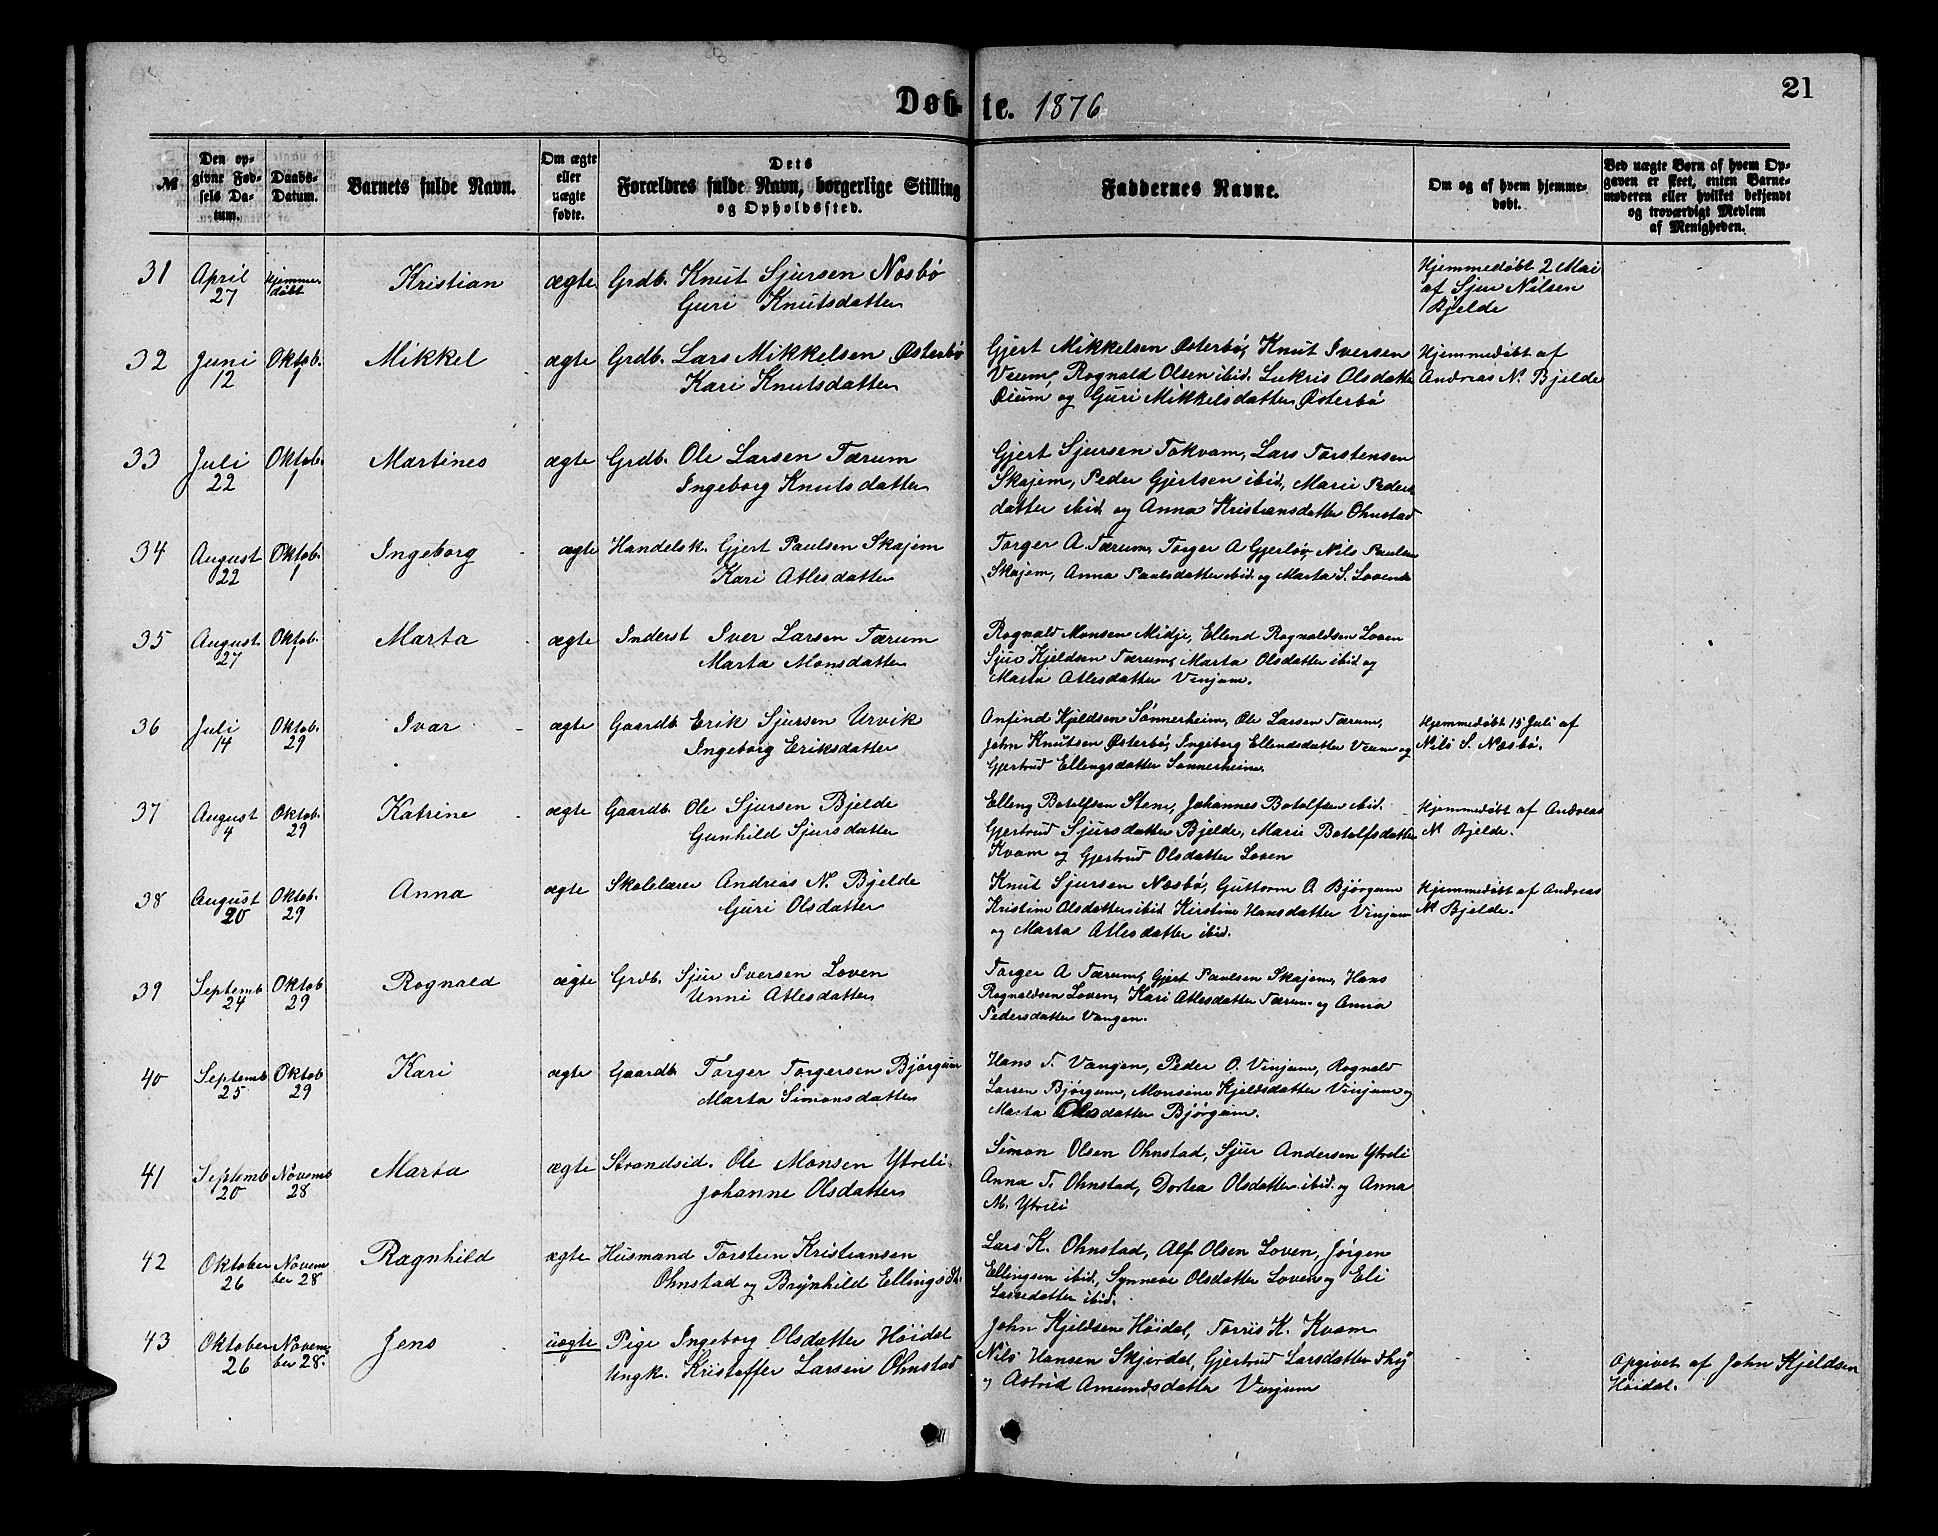 21
Døbte. 1876
№
Den opgivne Fødsels Datum.
Daabs-Datum.
Barnets fulde Navn.
Om ægte eller uægte fødte.
Dets Forældres fulde Navn, borgerlige Stilling og Opholdssted.
Faddernes Navne.
Om og af hvem hjemmedøbt.
Ved uægte Børn af hvem Opgaven er skeet, enten Barnemoderen eller hvilket bekjendt og troværdigt Medlem af Menigheden.
31 April 27 Hjemmedøbt Kristian ægte Grdb. Knut Sjursen Næsbø
Guri Knutsdatter
Hjemmedøbt 2 Mai
af Sjur Nilsen
Bjelde
32 Juni 12 Oktob. 1 Mikkel ægte Grdb. Lars Mikkelsen Østerbø
Kari Knutsdatter
Gjert Mikkelsen Østerbø, Knut Iversen
Veum, Rognald Olsen ibid. Lukris Olsdatter
Øium og Guri Mikkelsdatter Østerbø
Hjemmedøbt af
Andreas N. Bjelde
33 Juli 22 Oktob. 1 Martines ægte Grdb. Ole Larsen Tærum
Ingeborg Knutsdatter
Gjert Sjursen Tokvam, Lars Torstensen
Skajem, Peder Gjertsen ibid, Marie Peders
datter ibid og Anna Kristiansdatter Ohnstad
34 August 22 Oktob. 1 Ingeborg ægte Handelsk. Gjert Paulsen Skajem
Kari Atlesdatter
Torger A Tærum, Torger A Gjerløv, Nils Paulsen
Skajem, Anna Paulsdatter ibid og Marta S. Loven
35 August 27 Oktob. 1 Marta ægte Inderst Iver Larsen Tærum
Marta Monsdatter
Rognald Monsen Midje, Ellend Rognaldsen Loven
Sjur Kjeldsen Tærum, Marta Olsdatter ibid og
Marta Atlesdatter Vinjum.
36 Juli 14 Oktob. 29 Ivar ægte Gaardb. Erik Sjursen Urvik
Ingeborg Eriksdatter
Anfind Kjeldsen Sønnerheim, Ole Larsen Tærum,
John Knutsen Østerbø, Ingeborg Ellendsdatter Veum og
Gjertrud Ellingsdatter Sønnerheim.
Hjemmedøbt 15 Juli af
Nils S. Næsbø.
37 August 4 Oktob. 29 Katrine ægte Gaardb. Ole Sjursen Bjelde
Gunhild Sjursdatter
Elling Botolfsen Stene, Johannes Botolfsen ibid.
Gjertrud Sjursdatter Bjelde, Marie Botolfsdatter
Kvam og Gjertrud Olsdatter Loven
Hjemmedøbt af Andreas
N. Bjelde.
38 August 20 Oktob. 29 Anna ægte Skolelærer Andreas N. Bjelde
Guri Olsdatter
Knut Sjursen Næsbø, Guttorm O Bjørgum
Kristine Olsdatter ibid Kirstine Hansdatter Vinjum
og Marta Atlesdatter ibid.
Hjemmedøbt af Andreas
N. Bjelde.
39 Septemb 24 Oktob 29 Rognald ægte Grdb. Sjur Iversen Loven
Unni Atlesdatter
Torger A Tærum, Gjert Paulsen Skajem, Hans
Rognaldsen Loven, Kari Atlesdatter Tærum og Anna
Pedersdatter Vangen.
40 Septemb 25 Oktob 29 Kari ægte Gaardb Torger Torgersen Bjørgum
Marta Simonsdatter
Hans T. Vangen, Peder O. Vinjum, Rognald
Larsen Bjørgum, Monsine Kjeldsdatter Vinjum og
Marta Olsdatter Bjørgum.
41 Septemb 20 Novemb 28 Marta ægte Strandsid. Ole Monsen Ytreli
Johanne Olsdatter
Simon Olsen Ohnstad, Sjur Andersen Ytreli
Anna T. Ohnstad, Dortea Olsdatter ibid. og Anna
M. Ytreli
42 Oktober 26 November 28 Ragnhild ægte Husmand Torstein Kristiansen
Ohnstad og Brynhild Ellingsdt.
Lars K. Ohnstad, Alf Olsen Loven, Jørgen
Ellingsen ibid, Synneve Olsdatter Loven og Eli
Lassedatter ibid.
43 Oktober 26 November 28. Jens uægte Pige Ingeborg Olsdatter Høidal
Ungk. Kristoffer Larsen Ohnstad
John Kjeldsen Høidal, Torris K. Kvam
Nils Hansen Skjerdal, Gjertrud Larsdatter
og Astrid Amundsdatter Vinjum
Opgivet af John Kjeldsen
Høidal.